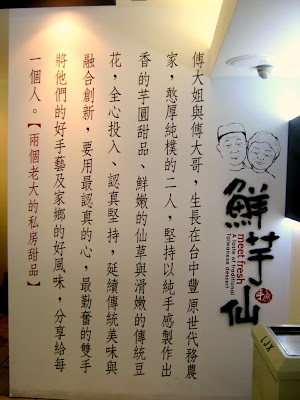 傅大姐與傅大哥，生長在台中豐原世代務農
家，憨厚純樸的二人，堅持以純手感製作出
香的芋圓甜品、鮮嫩的仙草與滑嫩的傳統豆
花，全心投入、認真堅持，延續傳統美味與
融合創新，要用最認真的心，最勤奮的雙手
將他們的好手藝及家鄉的好風味，分享給每
一個人。【兩個老大的私房甜品】
鮮芋仙
meet fresh
A taste of traditional
Taiwanese dessert
LUX